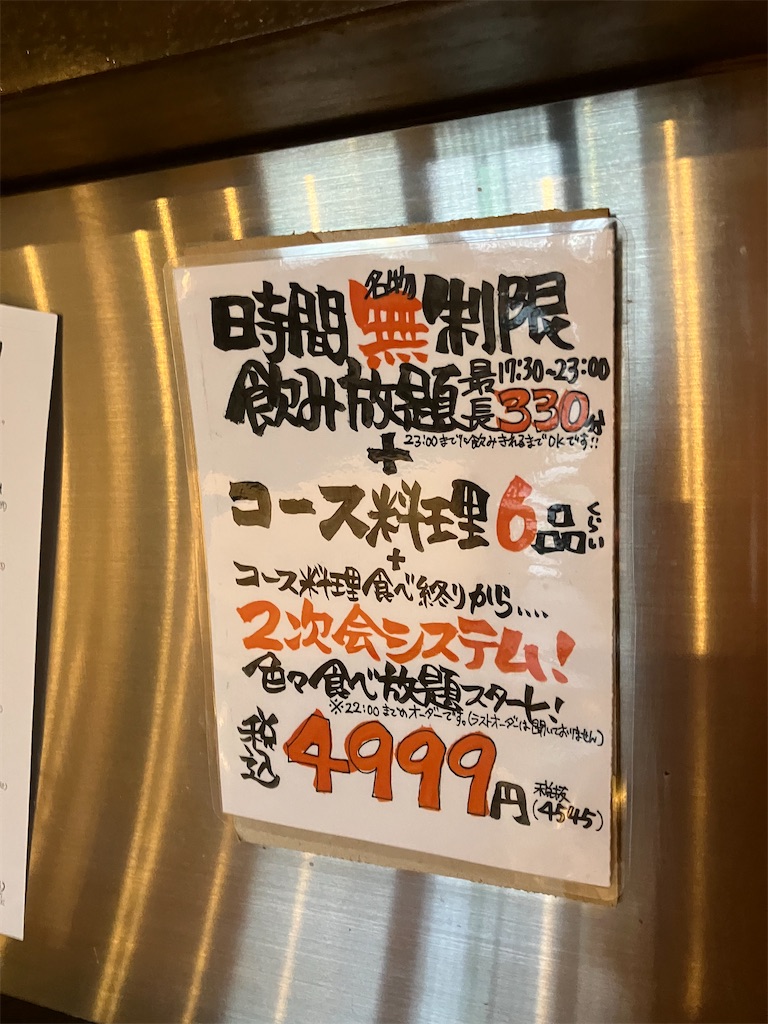 名物
時間無制限
飲み放題 最長 17:30~23:00 330分
23:00まで!飲みきれるまでOKです!!
+
コース料理6品くらい
+
コース料理食べ終りから....
2次会システム!
色々食べ放題スタート!
※22:00までのオーダーです。(ラストオーダーは聞いておりません)
税込 4999円 税抜(4545)